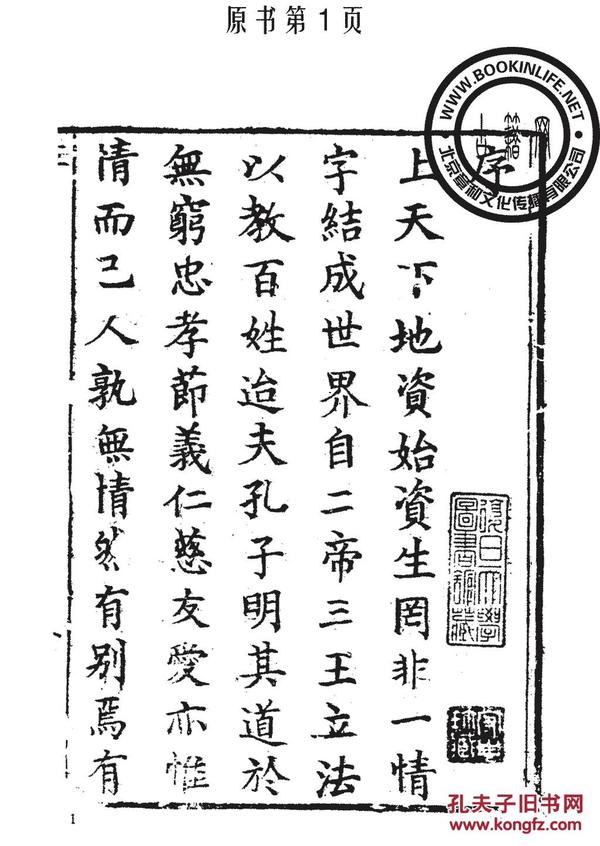 原书第1页
WWW.BOOKINLIFE.NET
北京育和文化传播有限公司
序
上天下地資始資生罔非一情
字結成世界自二帝三王立法
以教百姓迨夫孔子明其道於
無窮忠孝節義仁慈友愛亦惟
清而已人孰無情然有別焉有
復旦大學
圖書館藏
1
孔夫子旧书网
www.kongfz.com